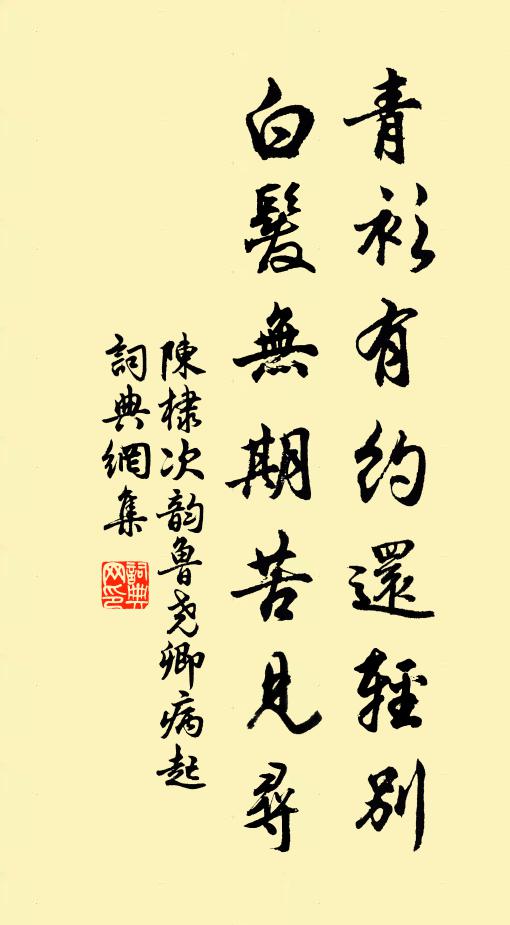 青衫有約還輕別
白髮無期苦見尋
陳棣次韵魯尧卿病起
詞典網集
詞典网印